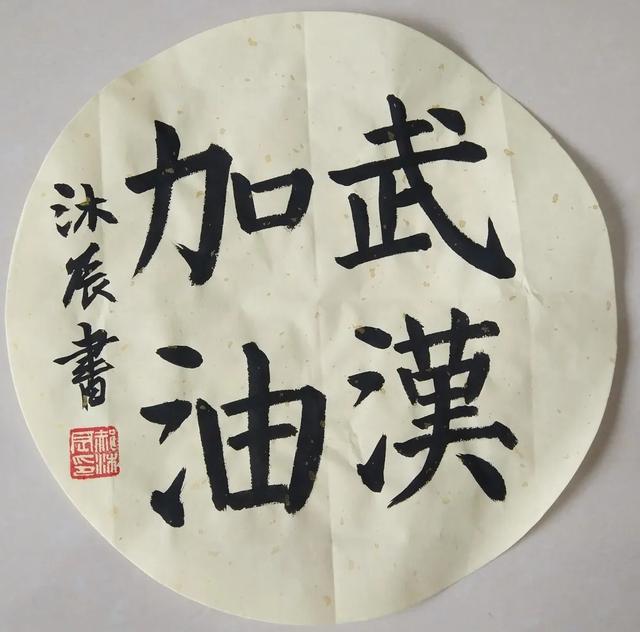 武漢
加油
沐辰書